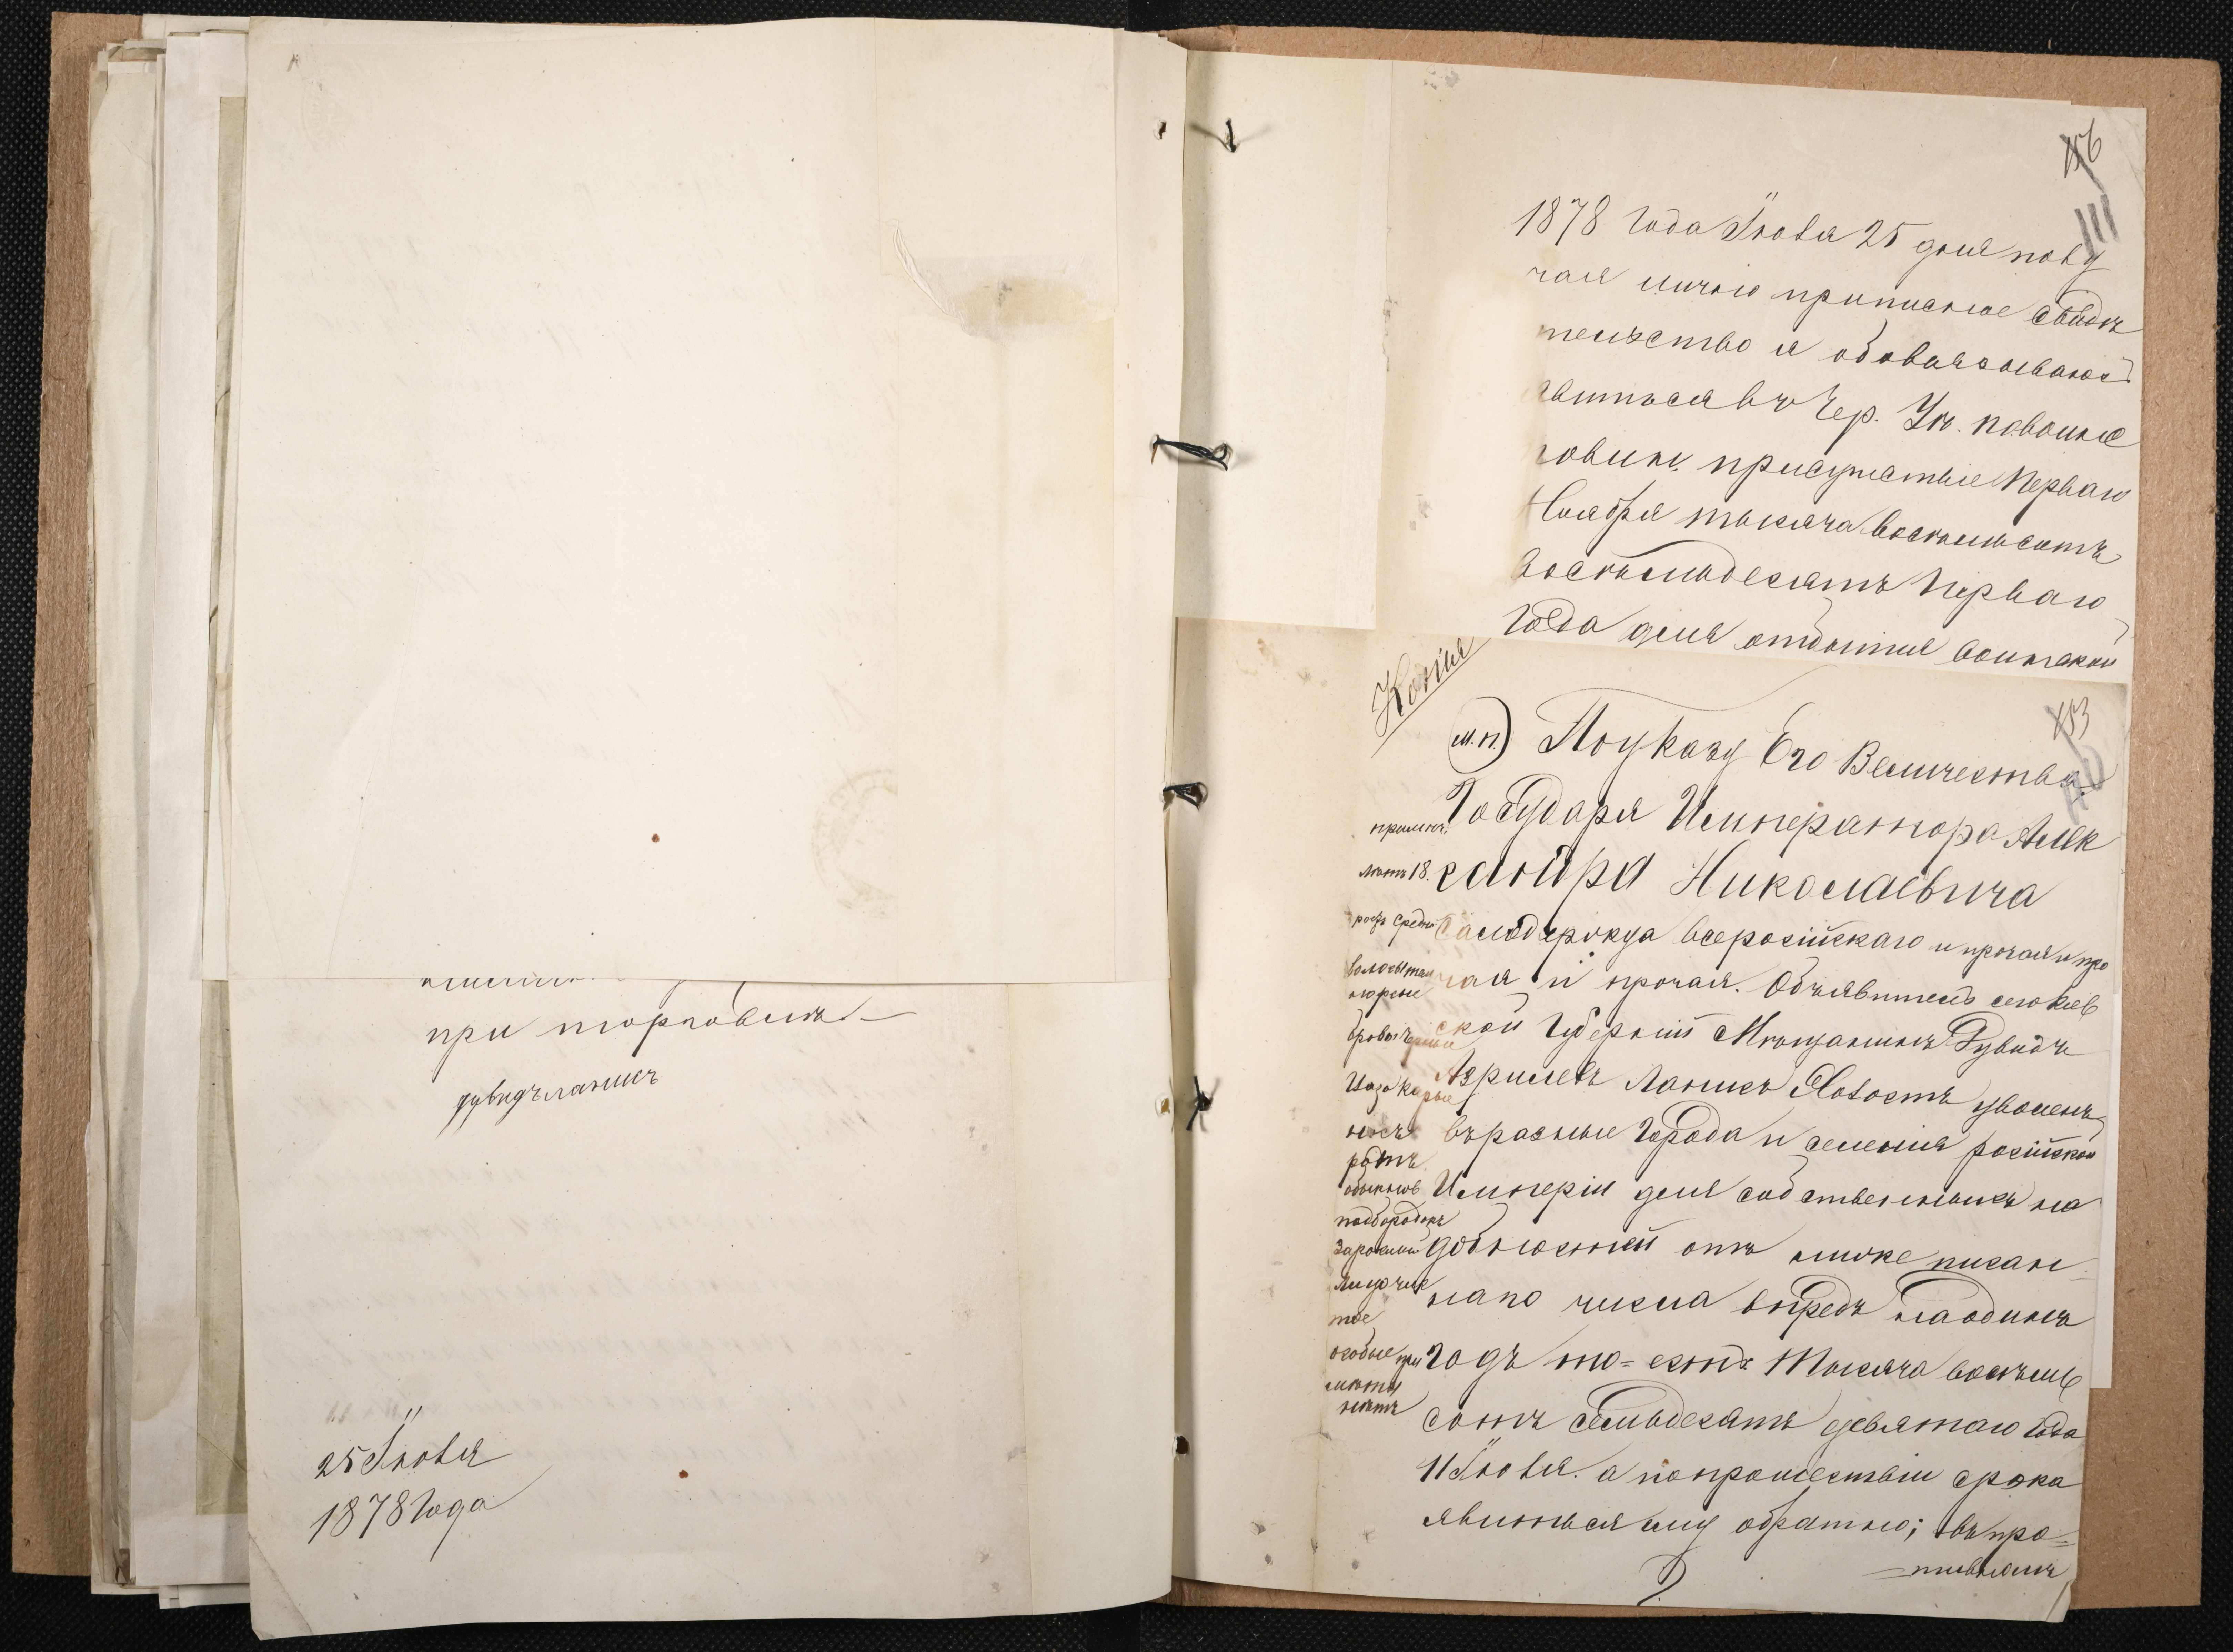 при торговли
дувидъ ланисъ
25 Іюля
1878 Года
156
111
1878 Года Іюля 25 дня полу
чая лично приписное Свидѣ
тельство я обовязываюсь
явиться въ Чер. Уѣ. повоине
повинн. присутствіе Перваго
Ноября тысяча восемьсотъ
восемьдесятъ Перваго
Года для отбытія воинской
Копія
153
м.п.) По указу Его Величества
Государя Императора Алек
сандра Николаевича
Самодержца всеросійскаго и прочая и про
чая и прочая. Объявитель сего Кіев
ской Губерніи Мѣщанинъ Дувидъ
Азрилевъ Ланисъ уволенъ
въ разные Города и селенія російской
Имперіи для собственныхъ на
добностей отъ ниже писан
наго числа впредь на одинъ
годъ то=есть Тысяча восемь
сотъ семьдесятъ девятаго года
11 Іюля. а по прошествіи срока
явиться ему обратно; въ про=
=тивномъ
примѣт.
лѣтъ 18.
ростъ средній
волосы тем
норусые
брови черные
глаза карые
носъ
ротъ
обыкнов
подбородокъ
лицо чис
тое
особые при
мѣты
нѣтъ